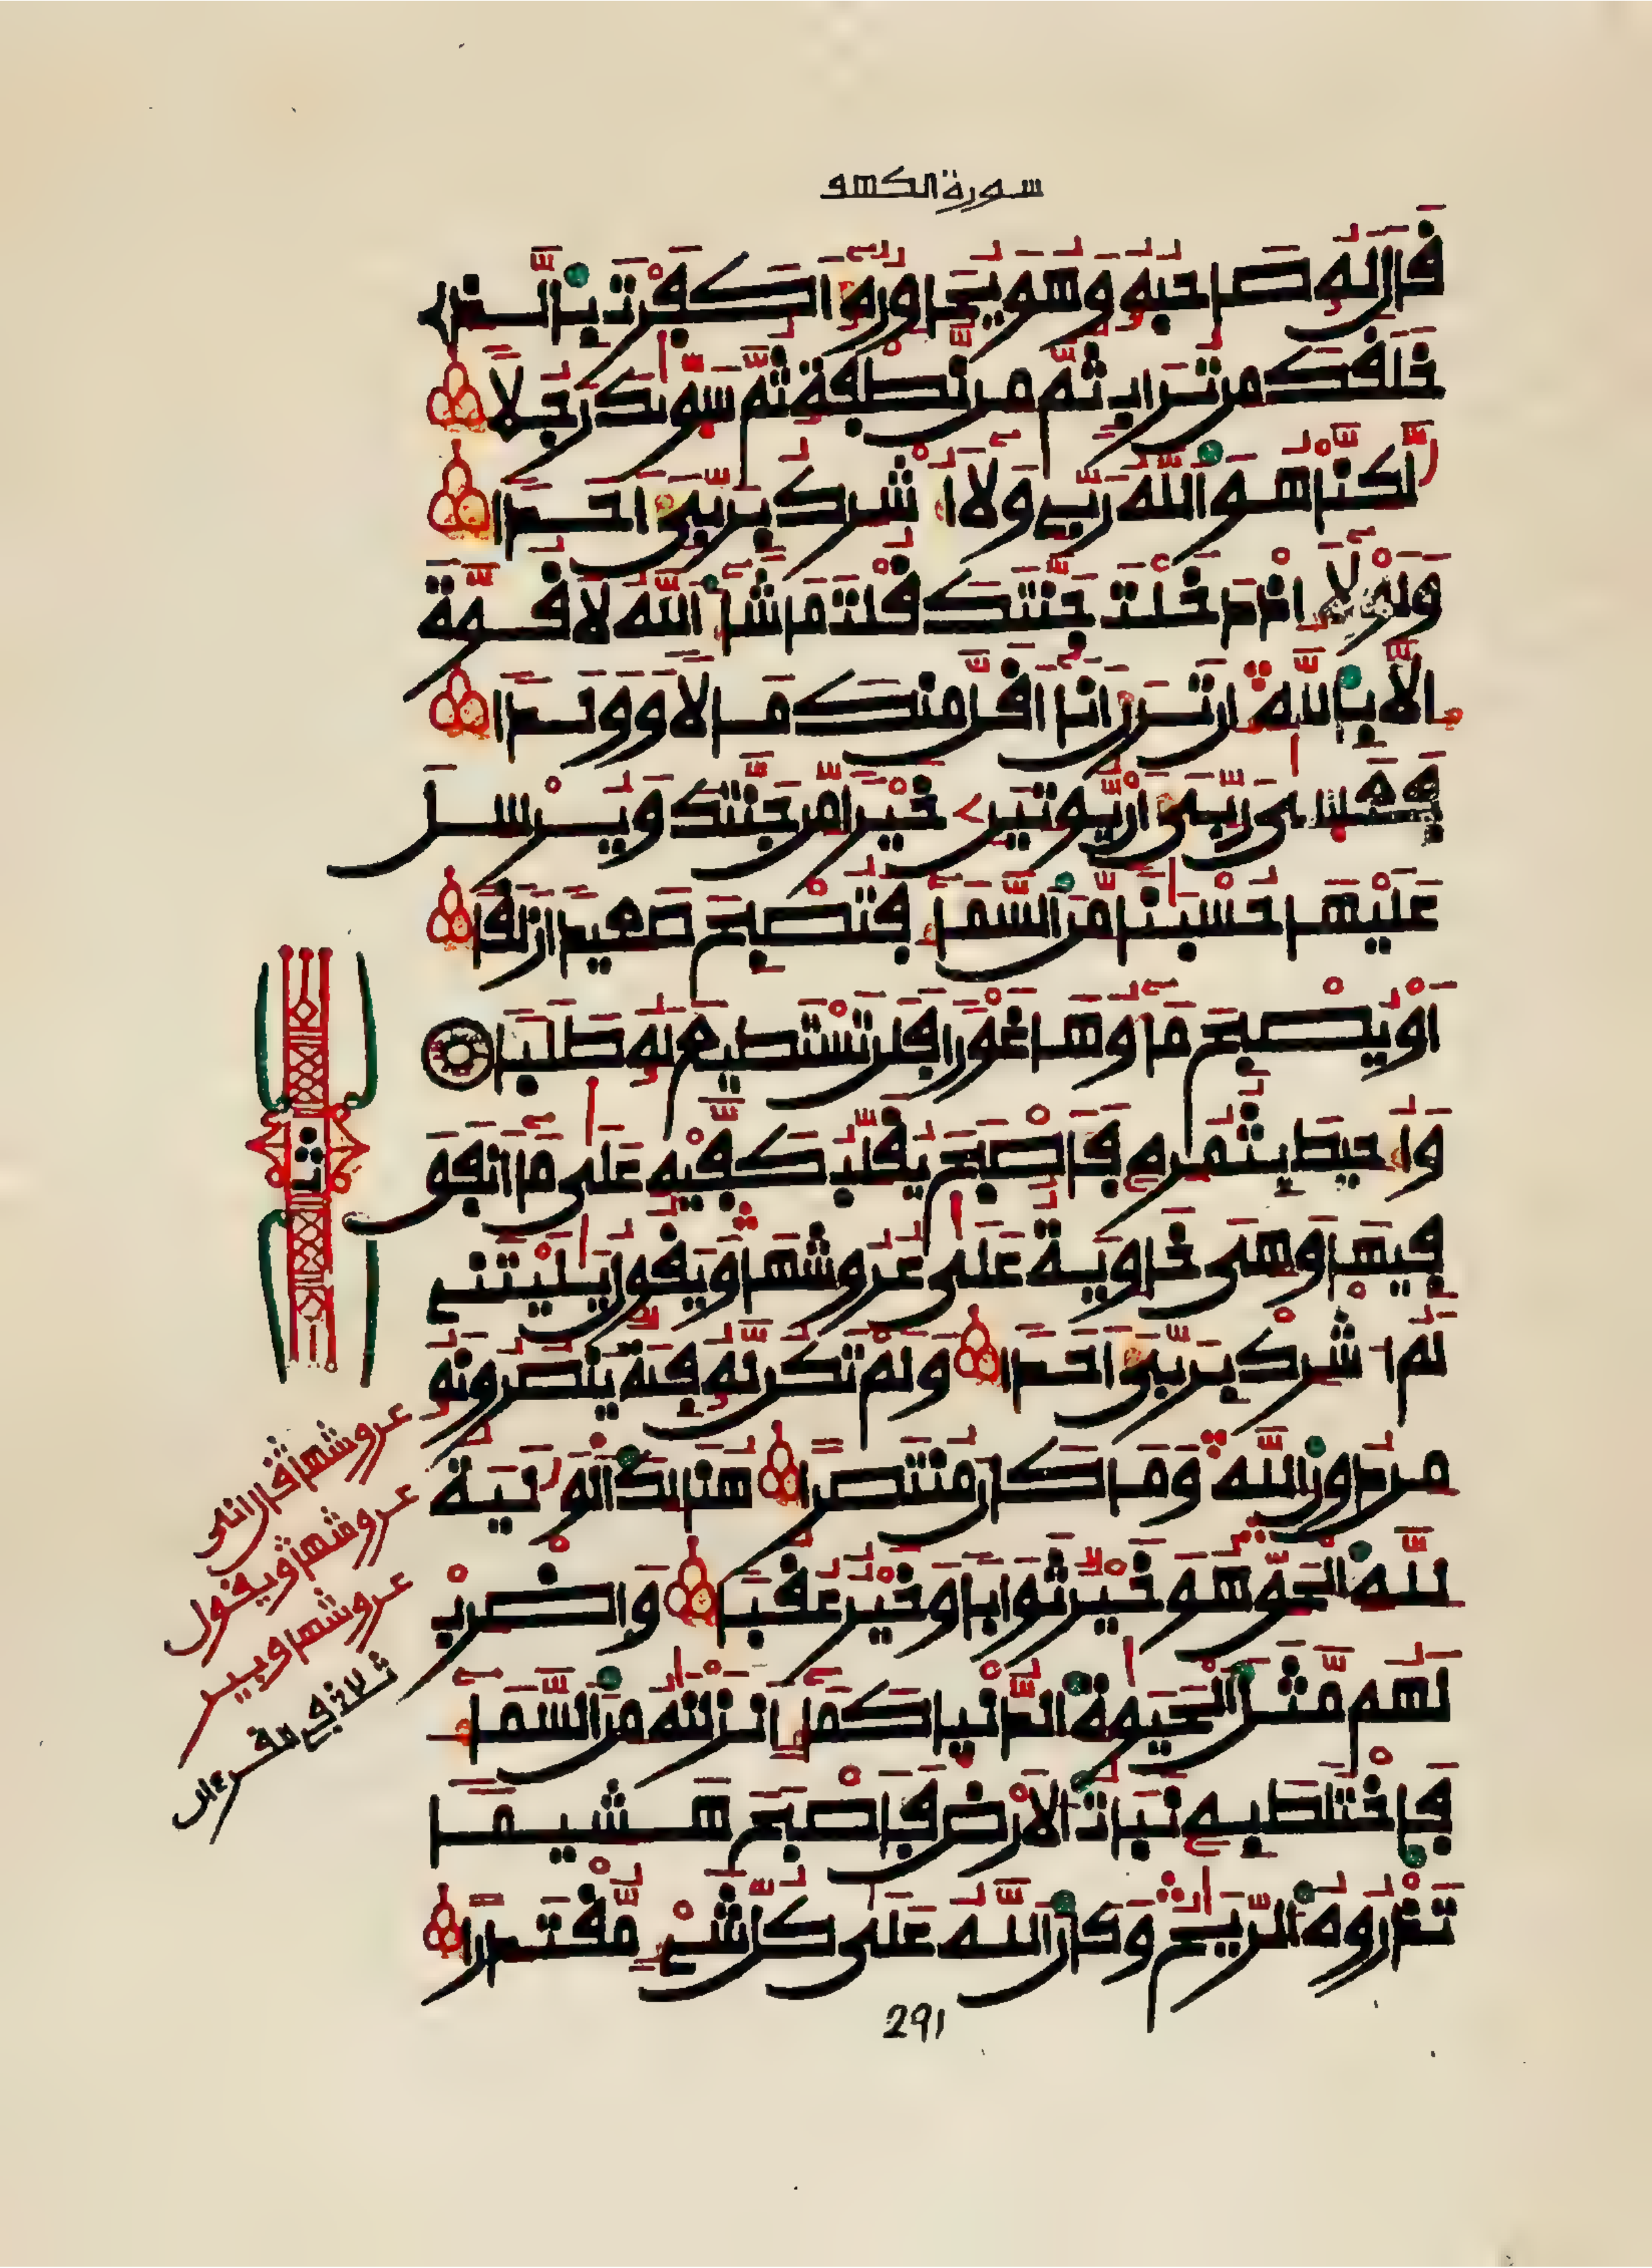 سورة الكهف
قَالَ لَهُۥ صَاحِبُهُۥ وَهُوَ يُحَاوِرُهُۥٓ أَكَفَرْتَ بِالَّذِے
خَلَقَكَ مِن تُرَابٍ ثُمَّ مِن نُّطْفَةٍ ثُمَّ سَوّٜىٰكَ رَجُلًا
لَّٰكِنَّا هُوَ اللَّهُ رَبِّے وَلَآ أُشْرِكُ بِرَبِّيَ أَحَدًا
وَلَوْلَآ إِذْ دَخَلْتَ جَنَّتَكَ قُلْتَ مَا شَآءَ اللَّهُ لَا قُوَّةَ
إِلَّا بِاللَّهِ إِن تَرَنِ أَنَآ أَقَلَّ مِنكَ مَالًا وَوَلَدًا
فَعَسَىٰ رَبِّيَ أَنْ يُّوتِيَنِۦ خَيْرًا مِّن جَنَّتِكَ وَيُرْسِلَ
عَلَيْهَا حُسْبَٰنًا مِّنَ السَّمَآءِ فَتُصْبِحَ صَعِيدًا زَلَقًا
أَوْ يُصْبِحَ مَآؤُهَا غَوْرًا فَلَن تَسْتَطِيعَ لَهُۥ طَلَبًا
وَأُحِيطَ بِثُمُرِهِۦ فَأَصْبَحَ يُقَلِّبُ كَفَّيْهِ عَلَىٰ مَآ أَنفَقَ
فِيهَا وَهِيَ خَاوِيَةٌ عَلَىٰ عُرُوشِهَا وَيَقُولُ يَٰلَيْتَنِے
لَمُ أُشْرِكْ بِرَبِّيَ أَحَدًا وَلَمْ تَكُن لَّهُۥ فِئَةٌ يَنصُرُونَهُۥ
مِن دُونِ اللَّهِ وَمَا كَانَ مُنتَصِرًا هُنَالِكَ الْوَلَٰيَةُ
لِلَّهِ الْحَقِّ هُوَ خَيْرٌ ثَوَابًا وَخَيْرٌ عُقُبًا وَاضْرِبْ
لَهُم مَّثَلَ الْحَيَوٰةِ الدُّنْيَا كَمَآءٍ أَنزَلْنَٰهُ مِنَ السَّمَآءِ
فَاخْتَلَطَ بِهِۦ نَبَاتُ الَارْضِ فَأَصْبَحَ هَشِيمًا
تَذْرُوهُ الرِّيَٰحُ وَكَانَ اللَّهُ عَلَىٰ كُلِّ شَےْءٍ مُّقْتَدِرًا
ثمن
عروشها قال انى
عروشها ويقول
عروشها وبير
ثلاث في مقرءان
291